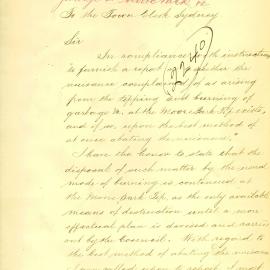 To the Town Clerk Sydney
Sir
In compliance with the instruction
to furnish a report whether the
nuisance complained of as arising
from the tipping and burning of
garbage &c. at the Moore Park Tip exists,
and if so, upon the best method of
at once abating the nuisance"
I have the honor to state that the
disposal of such matter by the usual
mode of burning is continued at
the Moore Park Tip as the only available
means of destruction until a more
effectual plan is devised and carried
out by the Council. With regard to
the best method of abating the nuisance